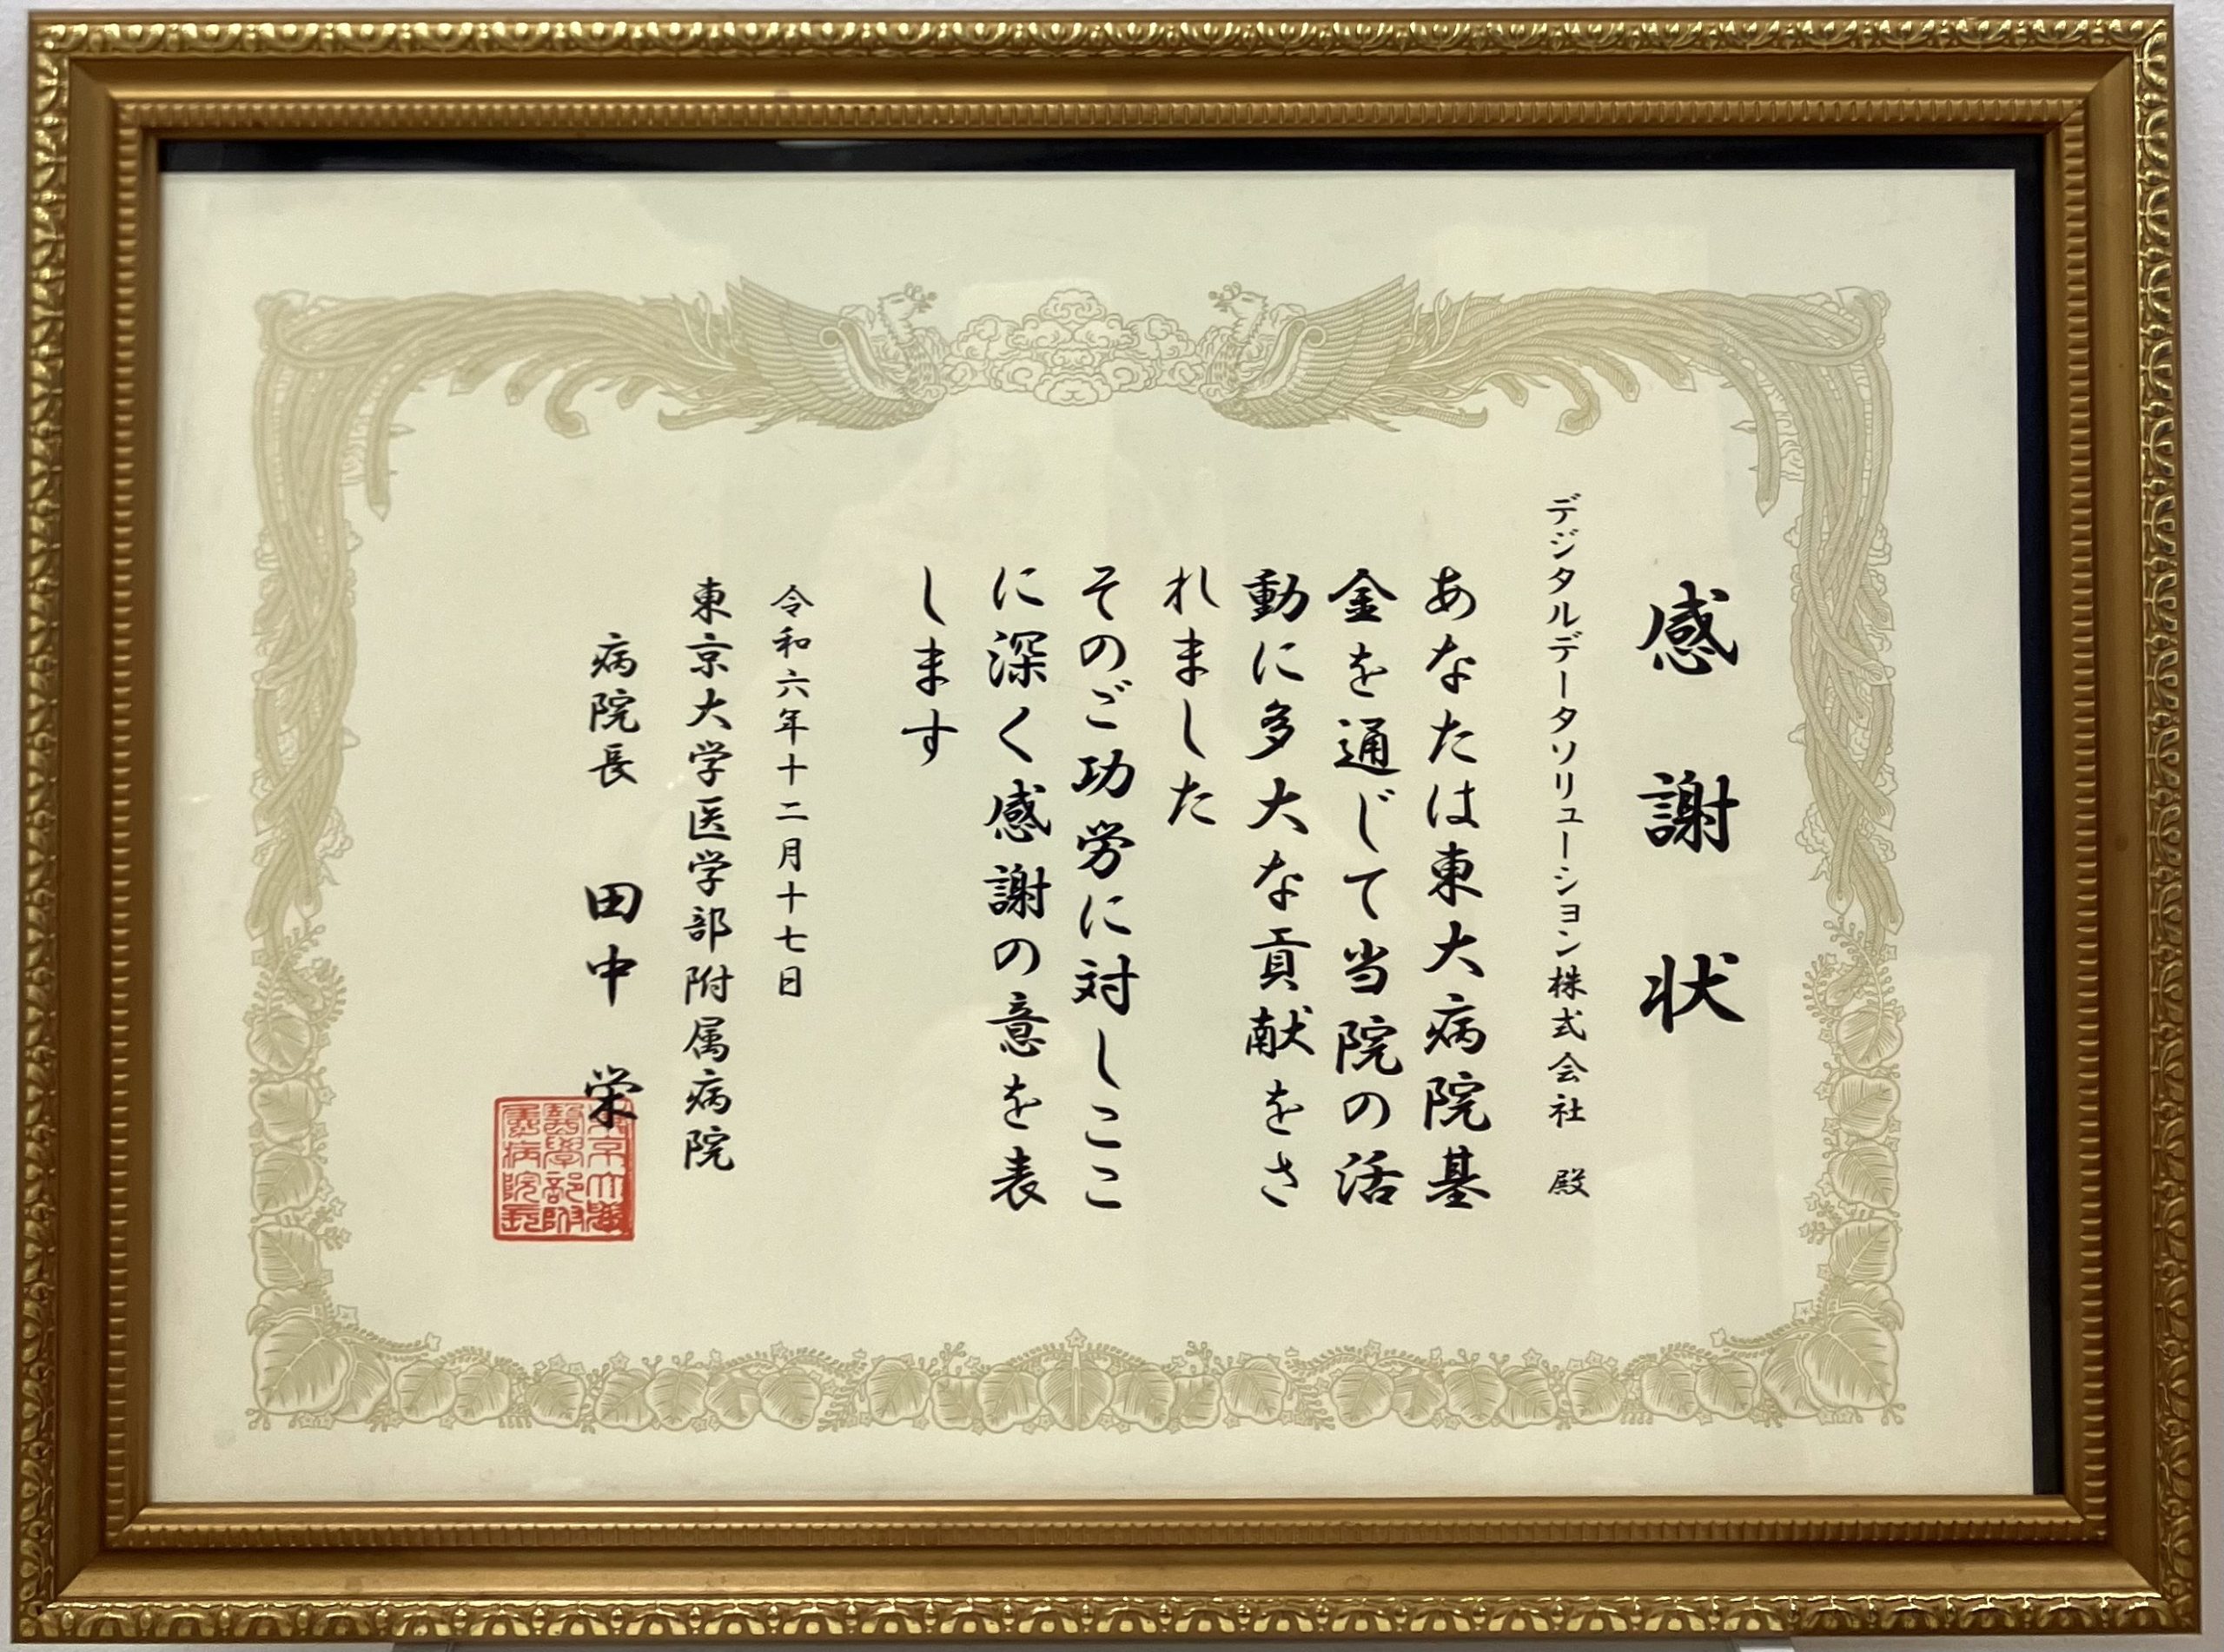 感謝状
デジタルデータソリューション株式会社 殿
あなたは東大病院基
金を通じて当院の活
動に多大な貢献をさ
れました
そのご功労に対しここ
に深く感謝の意を表
します
令和六年十二月十七日
東京大学医学部附属病院
病院長 田中 栄
東京大學
醫學部附
屬病院長